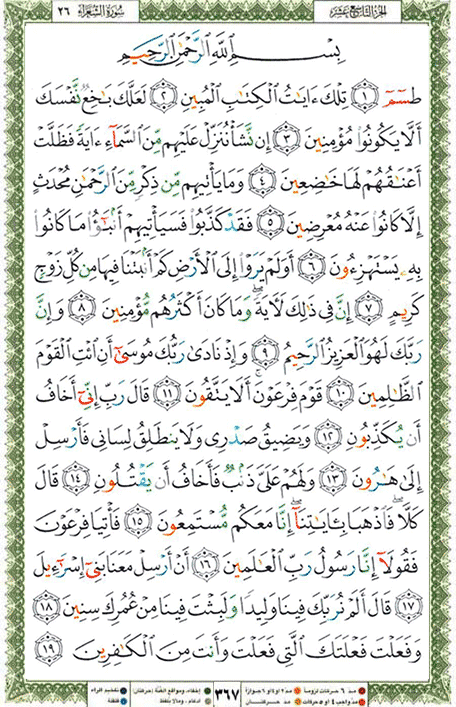 الجزء التاسع عشر
سورة الشعراء ٢٦
بِسْمِ ٱللَّهِ ٱلرَّحْمَٰنِ ٱلرَّحِيمِ
طسٓمٓ ١ تِلْكَ ءَايَٰتُ ٱلْكِتَٰبِ ٱلْمُبِينِ ٢ لَعَلَّكَ بَٰخِعٌ نَّفْسَكَ
أَلَّا يَكُونُوا۟ مُؤْمِنِينَ ٣ إِن نَّشَأْ نُنَزِّلْ عَلَيْهِم مِّنَ ٱلسَّمَآءِ ءَايَةً فَظَلَّتْ
أَعْنَٰقُهُمْ لَهَا خَٰضِعِينَ ٤ وَمَا يَأْتِيهِم مِّن ذِكْرٍ مِّنَ ٱلرَّحْمَٰنِ مُحْدَثٍ
إِلَّا كَانُوا۟ عَنْهُ مُعْرِضِينَ ٥ فَقَدْ كَذَّبُوا۟ فَسَيَأْتِيهِمْ أَنۢبَٰٓؤُا۟ مَا كَانُوا۟
بِهِۦ يَسْتَهْزِءُونَ ٦ أَوَلَمْ يَرَوْا۟ إِلَى ٱلْأَرْضِ كَمْ أَنۢبَتْنَا فِيهَا مِن كُلِّ زَوْجٍ
كَرِيمٍ ٧ إِنَّ فِى ذَٰلِكَ لَءَايَةً ۖ وَمَا كَانَ أَكْثَرُهُم مُّؤْمِنِينَ ٨ وَإِنَّ
رَبَّكَ لَهُوَ ٱلْعَزِيزُ ٱلرَّحِيمُ ٩ وَإِذْ نَادَىٰ رَبُّكَ مُوسَىٰٓ أَنِ ٱئْتِ ٱلْقَوْمَ
ٱلظَّٰلِمِينَ ١٠ قَوْمَ فِرْعَوْنَ ۚ أَلَا يَتَّقُونَ ١١ قَالَ رَبِّ إِنِّىٓ أَخَافُ
أَن يُكَذِّبُونِ ١٢ وَيَضِيقُ صَدْرِى وَلَا يَنطَلِقُ لِسَانِى فَأَرْسِلْ
إِلَىٰ هَٰرُونَ ١٣ وَلَهُمْ عَلَىَّ ذَنۢبٌ فَأَخَافُ أَن يَقْتُلُونِ ١٤ قَالَ
كَلَّا ۖ فَٱذْهَبَا بِـَٔايَٰتِنَآ ۖ إِنَّا مَعَكُم مُّسْتَمِعُونَ ١٥ فَأْتِيَا فِرْعَوْنَ
فَقُولَآ إِنَّا رَسُولُ رَبِّ ٱلْعَٰلَمِينَ ١٦ أَنْ أَرْسِلْ مَعَنَا بَنِىٓ إِسْرَٰٓءِيلَ
١٧ قَالَ أَلَمْ نُرَبِّكَ فِينَا وَلِيدًا وَلَبِثْتَ فِينَا مِنْ عُمُرِكَ سِنِينَ ١٨
وَفَعَلْتَ فَعْلَتَكَ ٱلَّتِى فَعَلْتَ وَأَنتَ مِنَ ٱلْكَٰفِرِينَ ١٩
مد ٦ حركات لزوماً مد ٢ او ٤ او ٦ جوازاً
مد واجب ٤ او ٥ حركات مد حركتان
٣٦٧
إخفاء، ومواقع الغنة (حركتان) تفخيم الراء
ادغام، وما لا يلفظ قلقلة